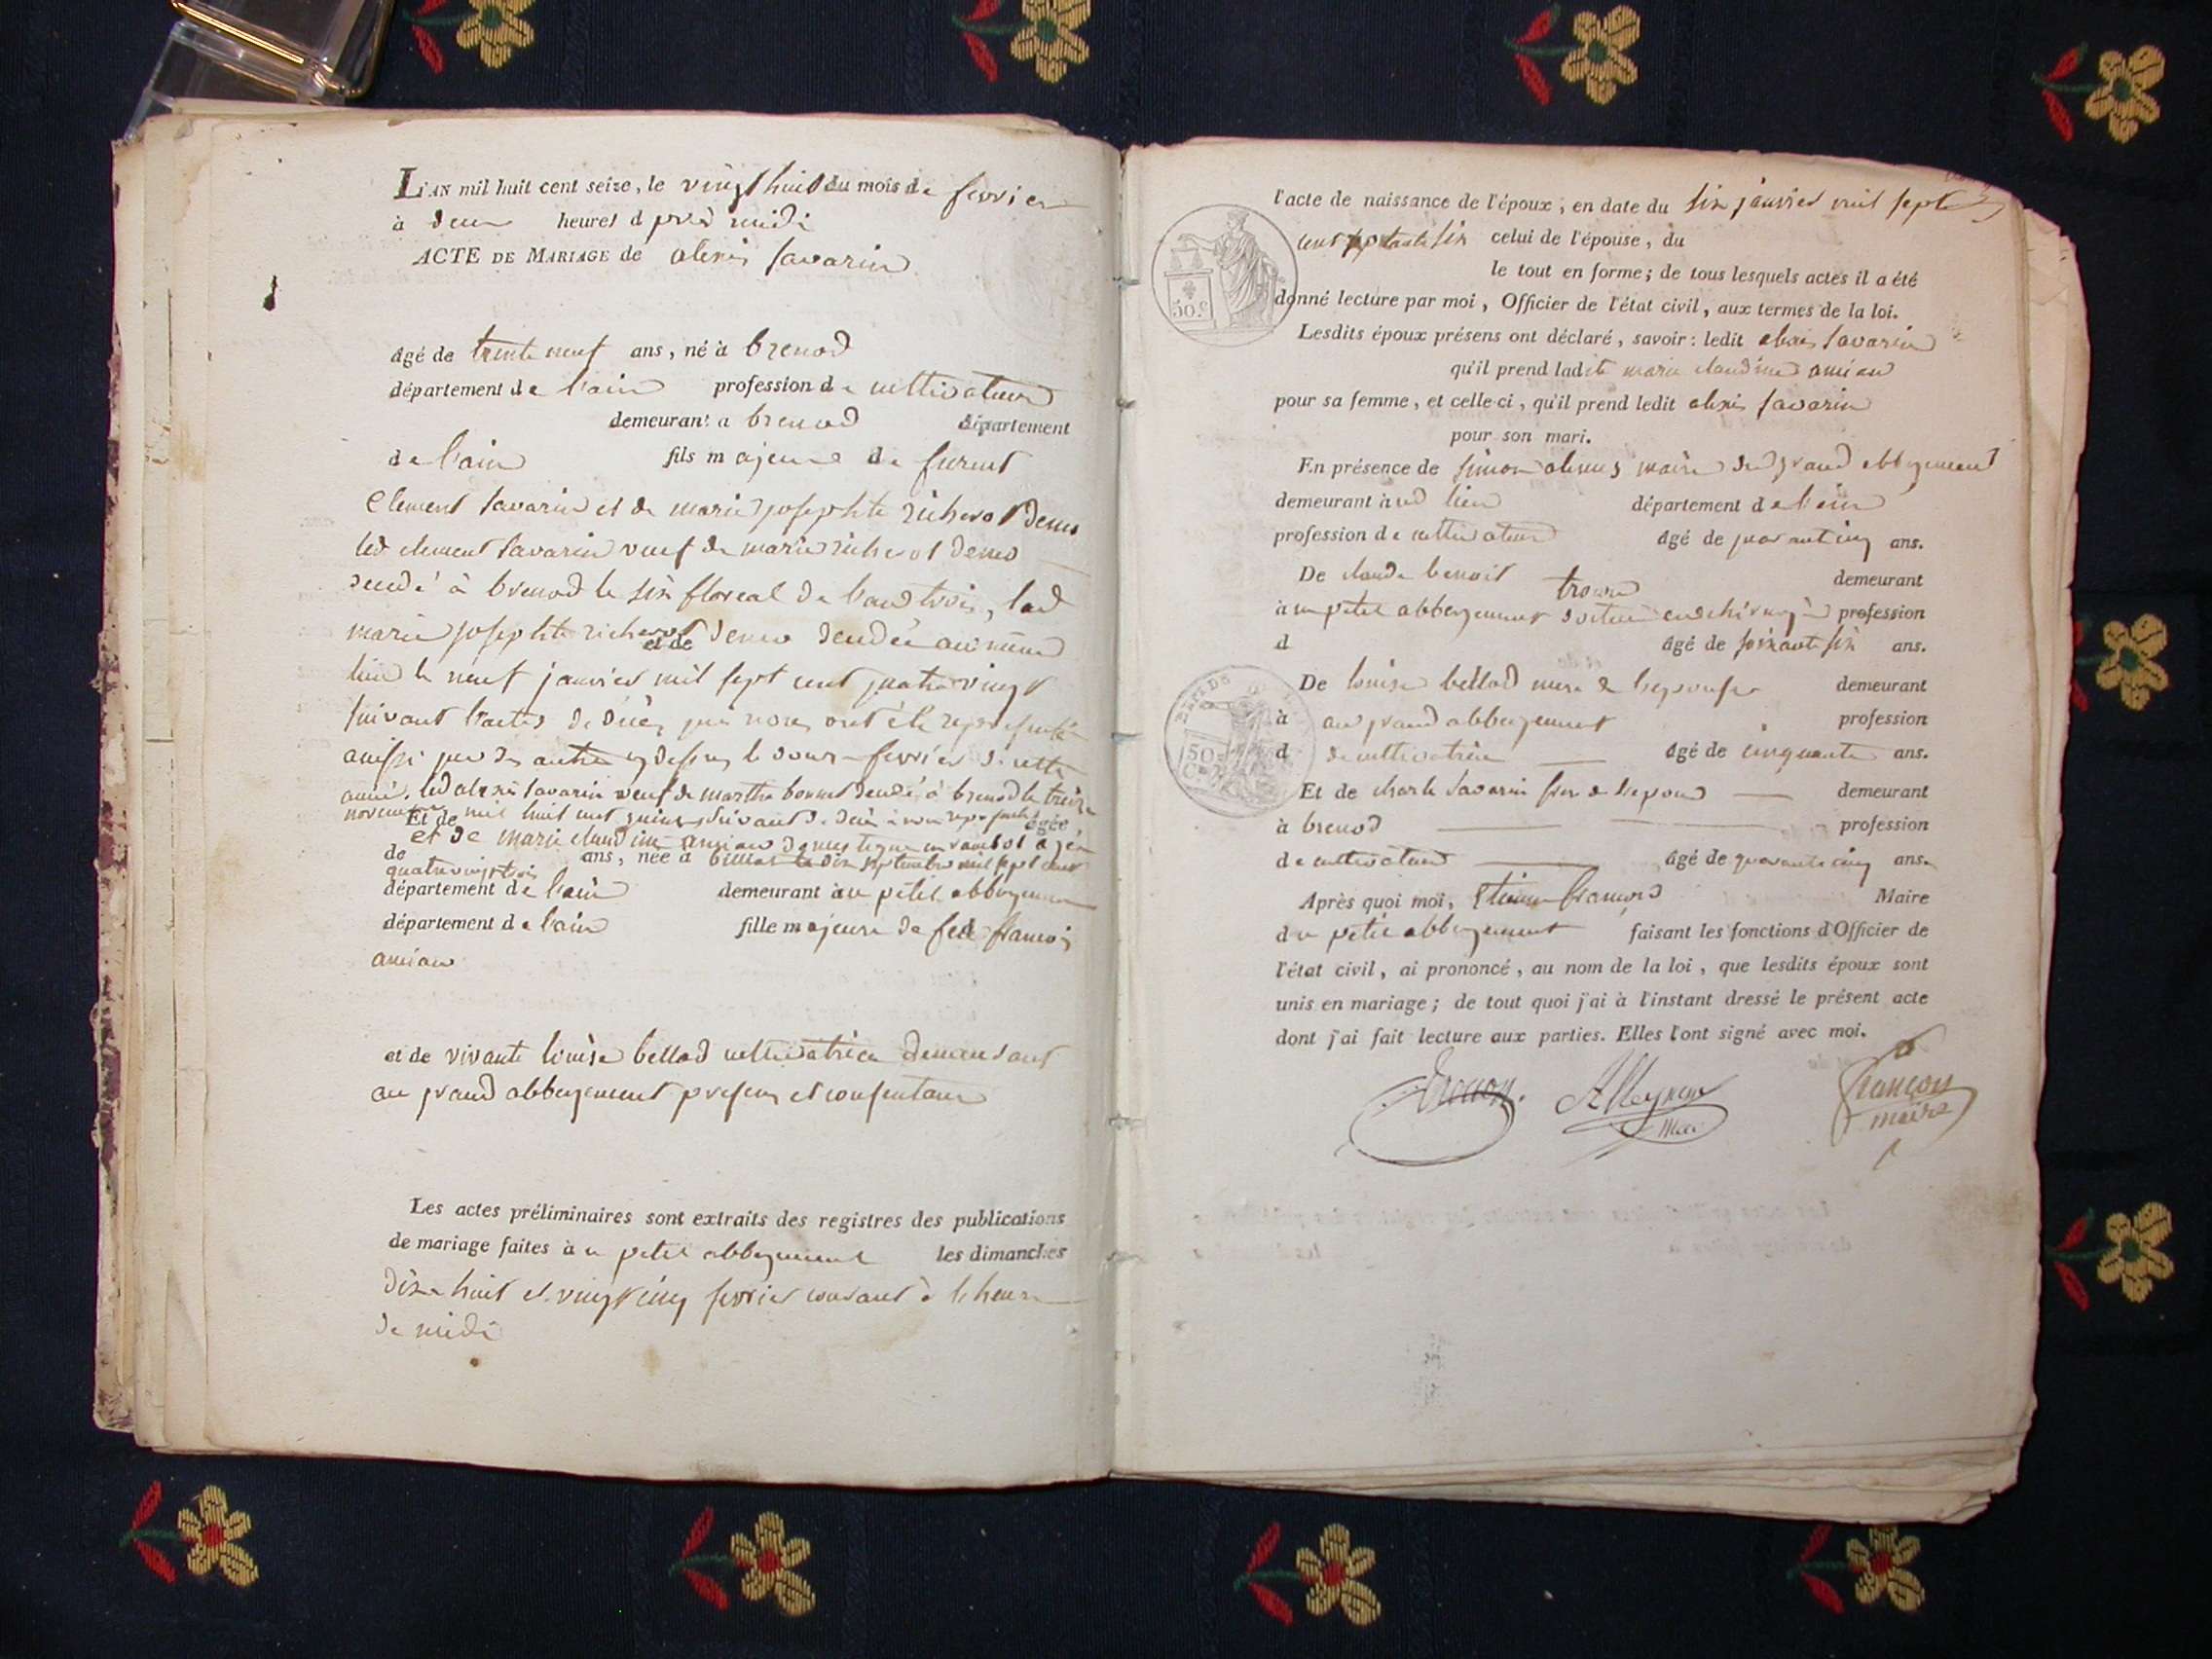 L'AN mil huit cent seize, le vingt huit du mois de fevrier
à deux heures d près midi
ACTE DE MARIAGE de alexis Savarin
âgé de trente neuf ans, né à brenod
département de l'ain profession de cultivateur
demeurant a brenod département
de l'ain fils majeur de furent
Clement Savarin et de marie josephte richerot
led clement Savarin veuf de marie richerot
à brenod le six floreal de l'and trois, lad
marie josephte richerot et de au même
lieu le neuf janvier mil sept cent quatre vingt
suivant l'actes de décès qui nous ont été representé
aussi que des autre cy dessus le douze fevrier de cette
année, led alexis Savarin veuf de marthe bonnet à brenod le treize
novembre Et de mil huit cent quinze suivant âgée
et de marie claudine amiau agée
de ans, née à le dix septembre mil sept cent
quatre vingt
département de l'ain demeurant au petit abbergement
département de l'ain fille majeure de feu francois
amiau
et de vivante louise bellod cultivatrice demeurant
au grand abbergement presens et consentans
Les actes préliminaires sont extraits des registres des publications
de mariage faites à u petit abbergement les dimanches
dixe huit et vingt cinq fevrier courant à l'heure
de midi
l'acte de naissance de l'époux, en date du six janvier mil sept
cent septante six celui de l'épouse, du
le tout en forme; de tous lesquels actes il a été
donné lecture par moi, Officier de l'état civil, aux termes de la loi.
Lesdits époux présens ont déclaré, savoir: ledit alexis Savarin
qu'il prend ladite marie claudine amiau
pour sa femme, et celle-ci, qu'il prend ledit alexis Savarin
pour son mari.
En présence de simon maire du grand abbergement
demeurant aud lieu département de l'ain
profession de cultivateur âgé de quarant cinq ans.
De claude benoit demeurant
à u petit abbergement profession
d âgé de soixante six ans.
De louise bellod mere de l'epouse demeurant
à au grand abbergement profession
d de cultivatrice âgé de cinquante ans.
Et de charle Savarin frer de l'epoux demeurant
à brenod profession
de cultivateur âgé de quarante cinq ans.
Après quoi moi, Maire
du petit abbergement faisant les fonctions d'Officier de
l'état civil, ai prononcé, au nom de la loi, que lesdits époux sont
unis en mariage; de tout quoi j'ai à l'instant dressé le présent acte
dont j'ai fait lecture aux parties. Elles l'ont signé avec moi.
françon
maire